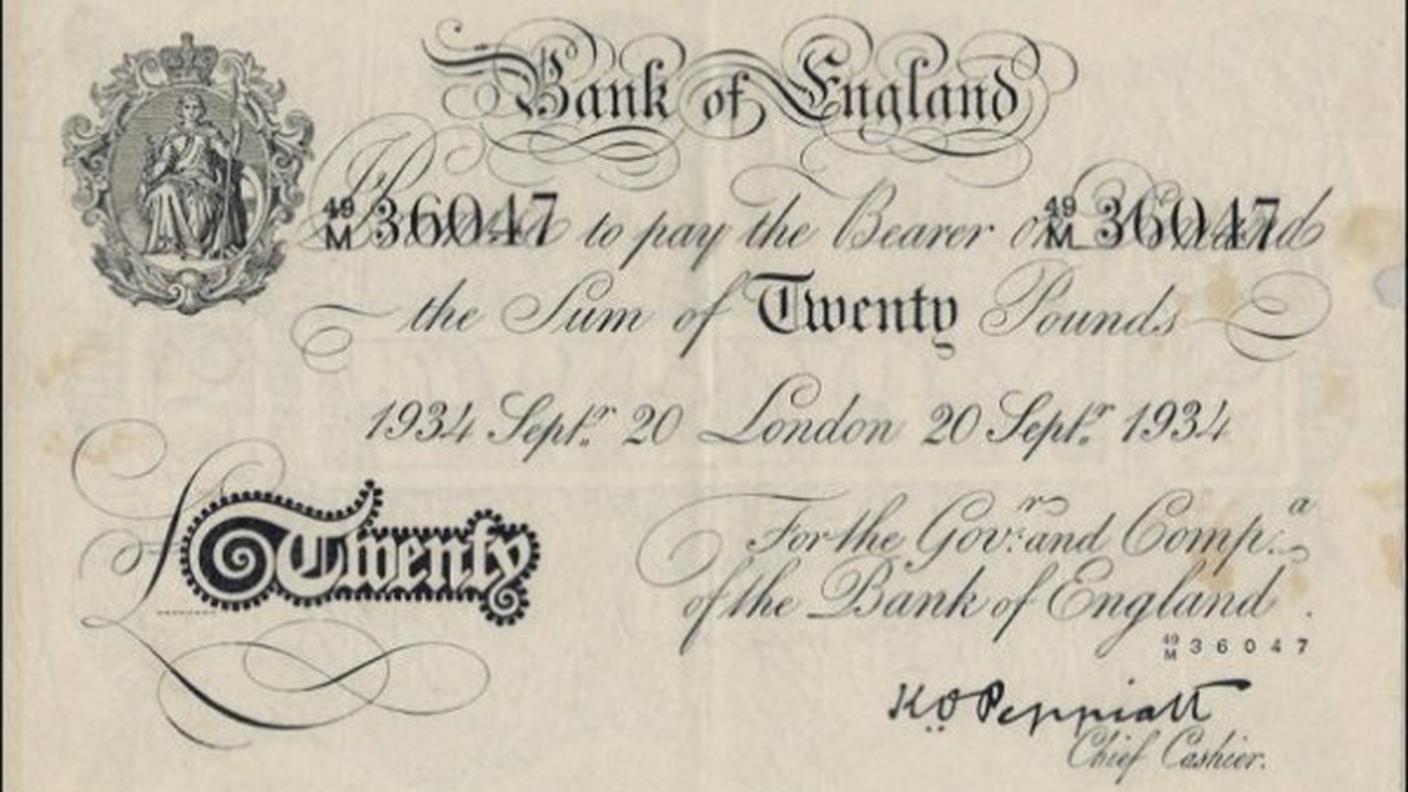 Bank of England
49/M 36047 to pay the Bearer on 49/M 36047
the Sum of Twenty Pounds
1934 Septr. 20 London 20 Septr. 1934
£Twenty
For the Govr. and Compa.
of the Bank of England.
49/M 36047
K.O. Peppiatt
Chief Cashier.